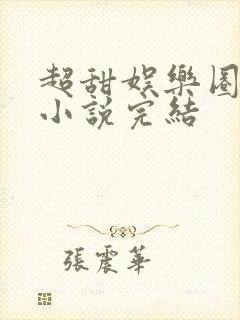 超甜娛樂圈
小說完結
張震華